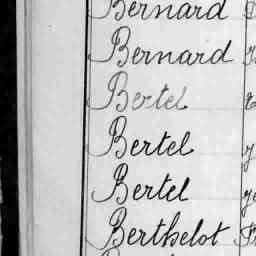 Bernard
Bernard
Bertel
Bertel
Bertel
Berthelot